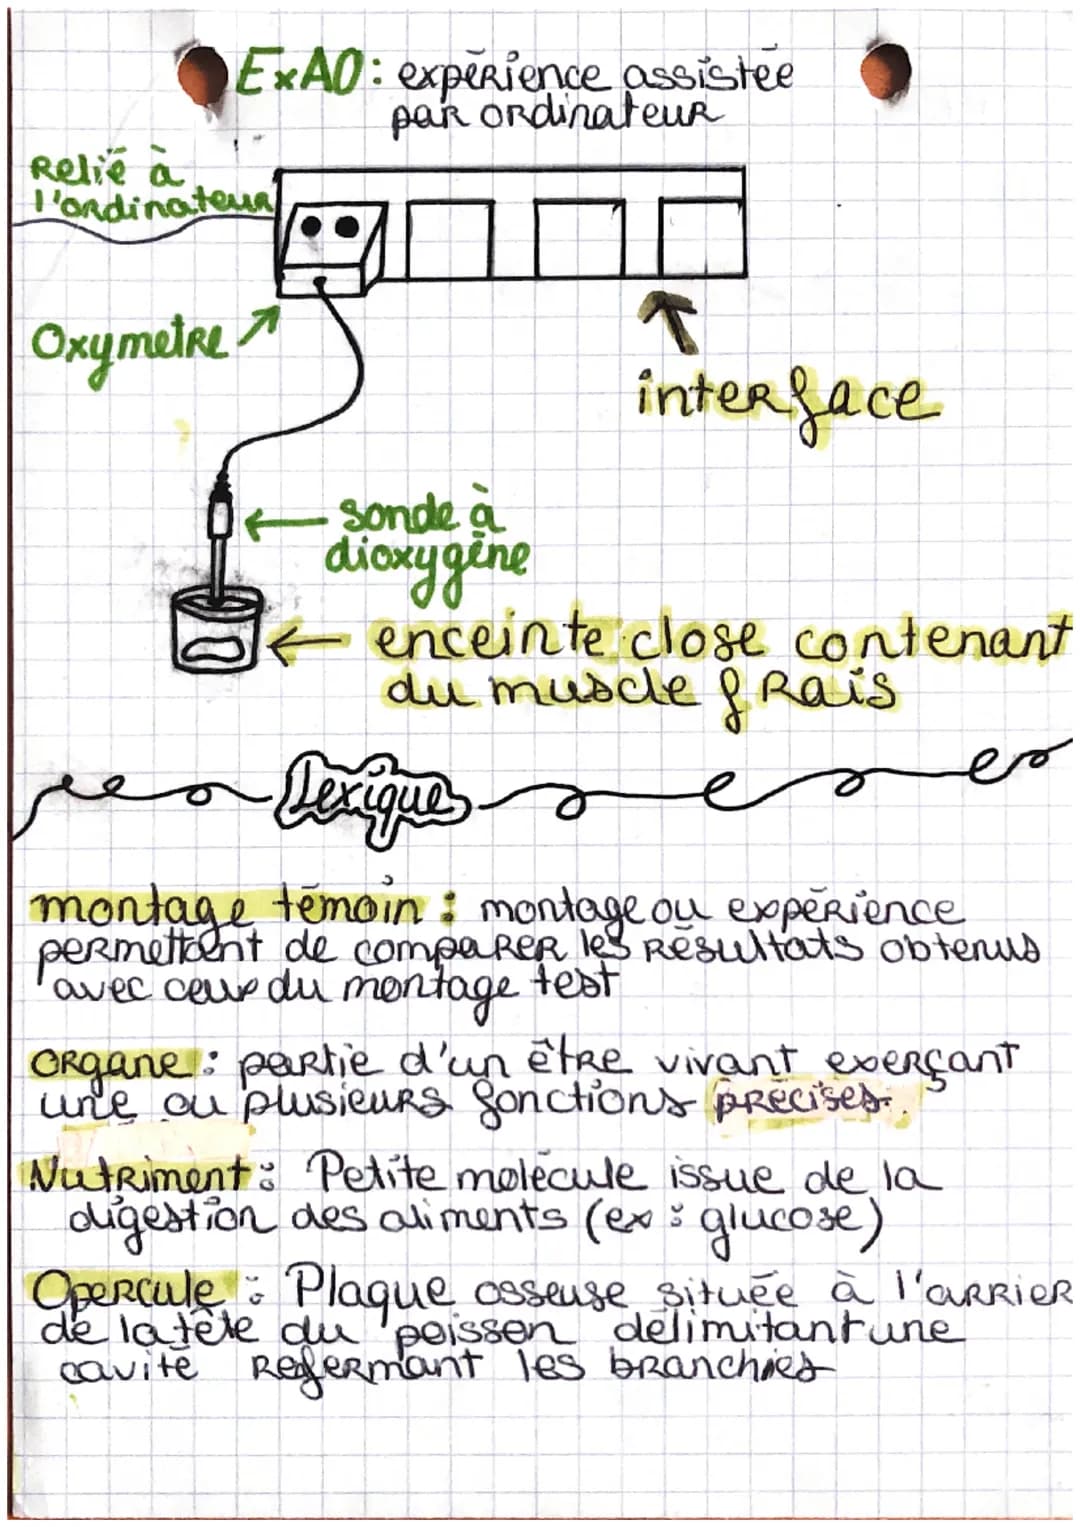 ExAO: expérience assistée
par ordinateur
Relié à
l'ordinateur
Oxymetre
interface
sonde à
dioxygène
enceinte close contenant
du muscle frais
Lexique
montage témoin : montage ou expérience
permettant de comparer les résultats obtenus
avec ceux du montage test
organe : partie d'un être vivant exerçant
une ou plusieurs fonctions précises.
Nutriment : Petite molécule issue de la
digestion des aliments (ex : glucose)
Opercule : Plaque osseuse située à l'arrier
de la tête du poisson délimitant une
cavité refermant les branchies